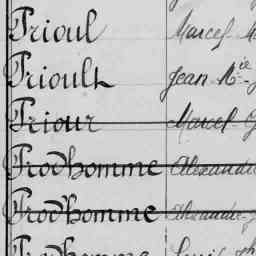 Trioul Marcel
Trioult Jean Mie
Triour Marcel
Trodhomme Alexandre
Trodhomme Alexandre
Trodhomme Louis